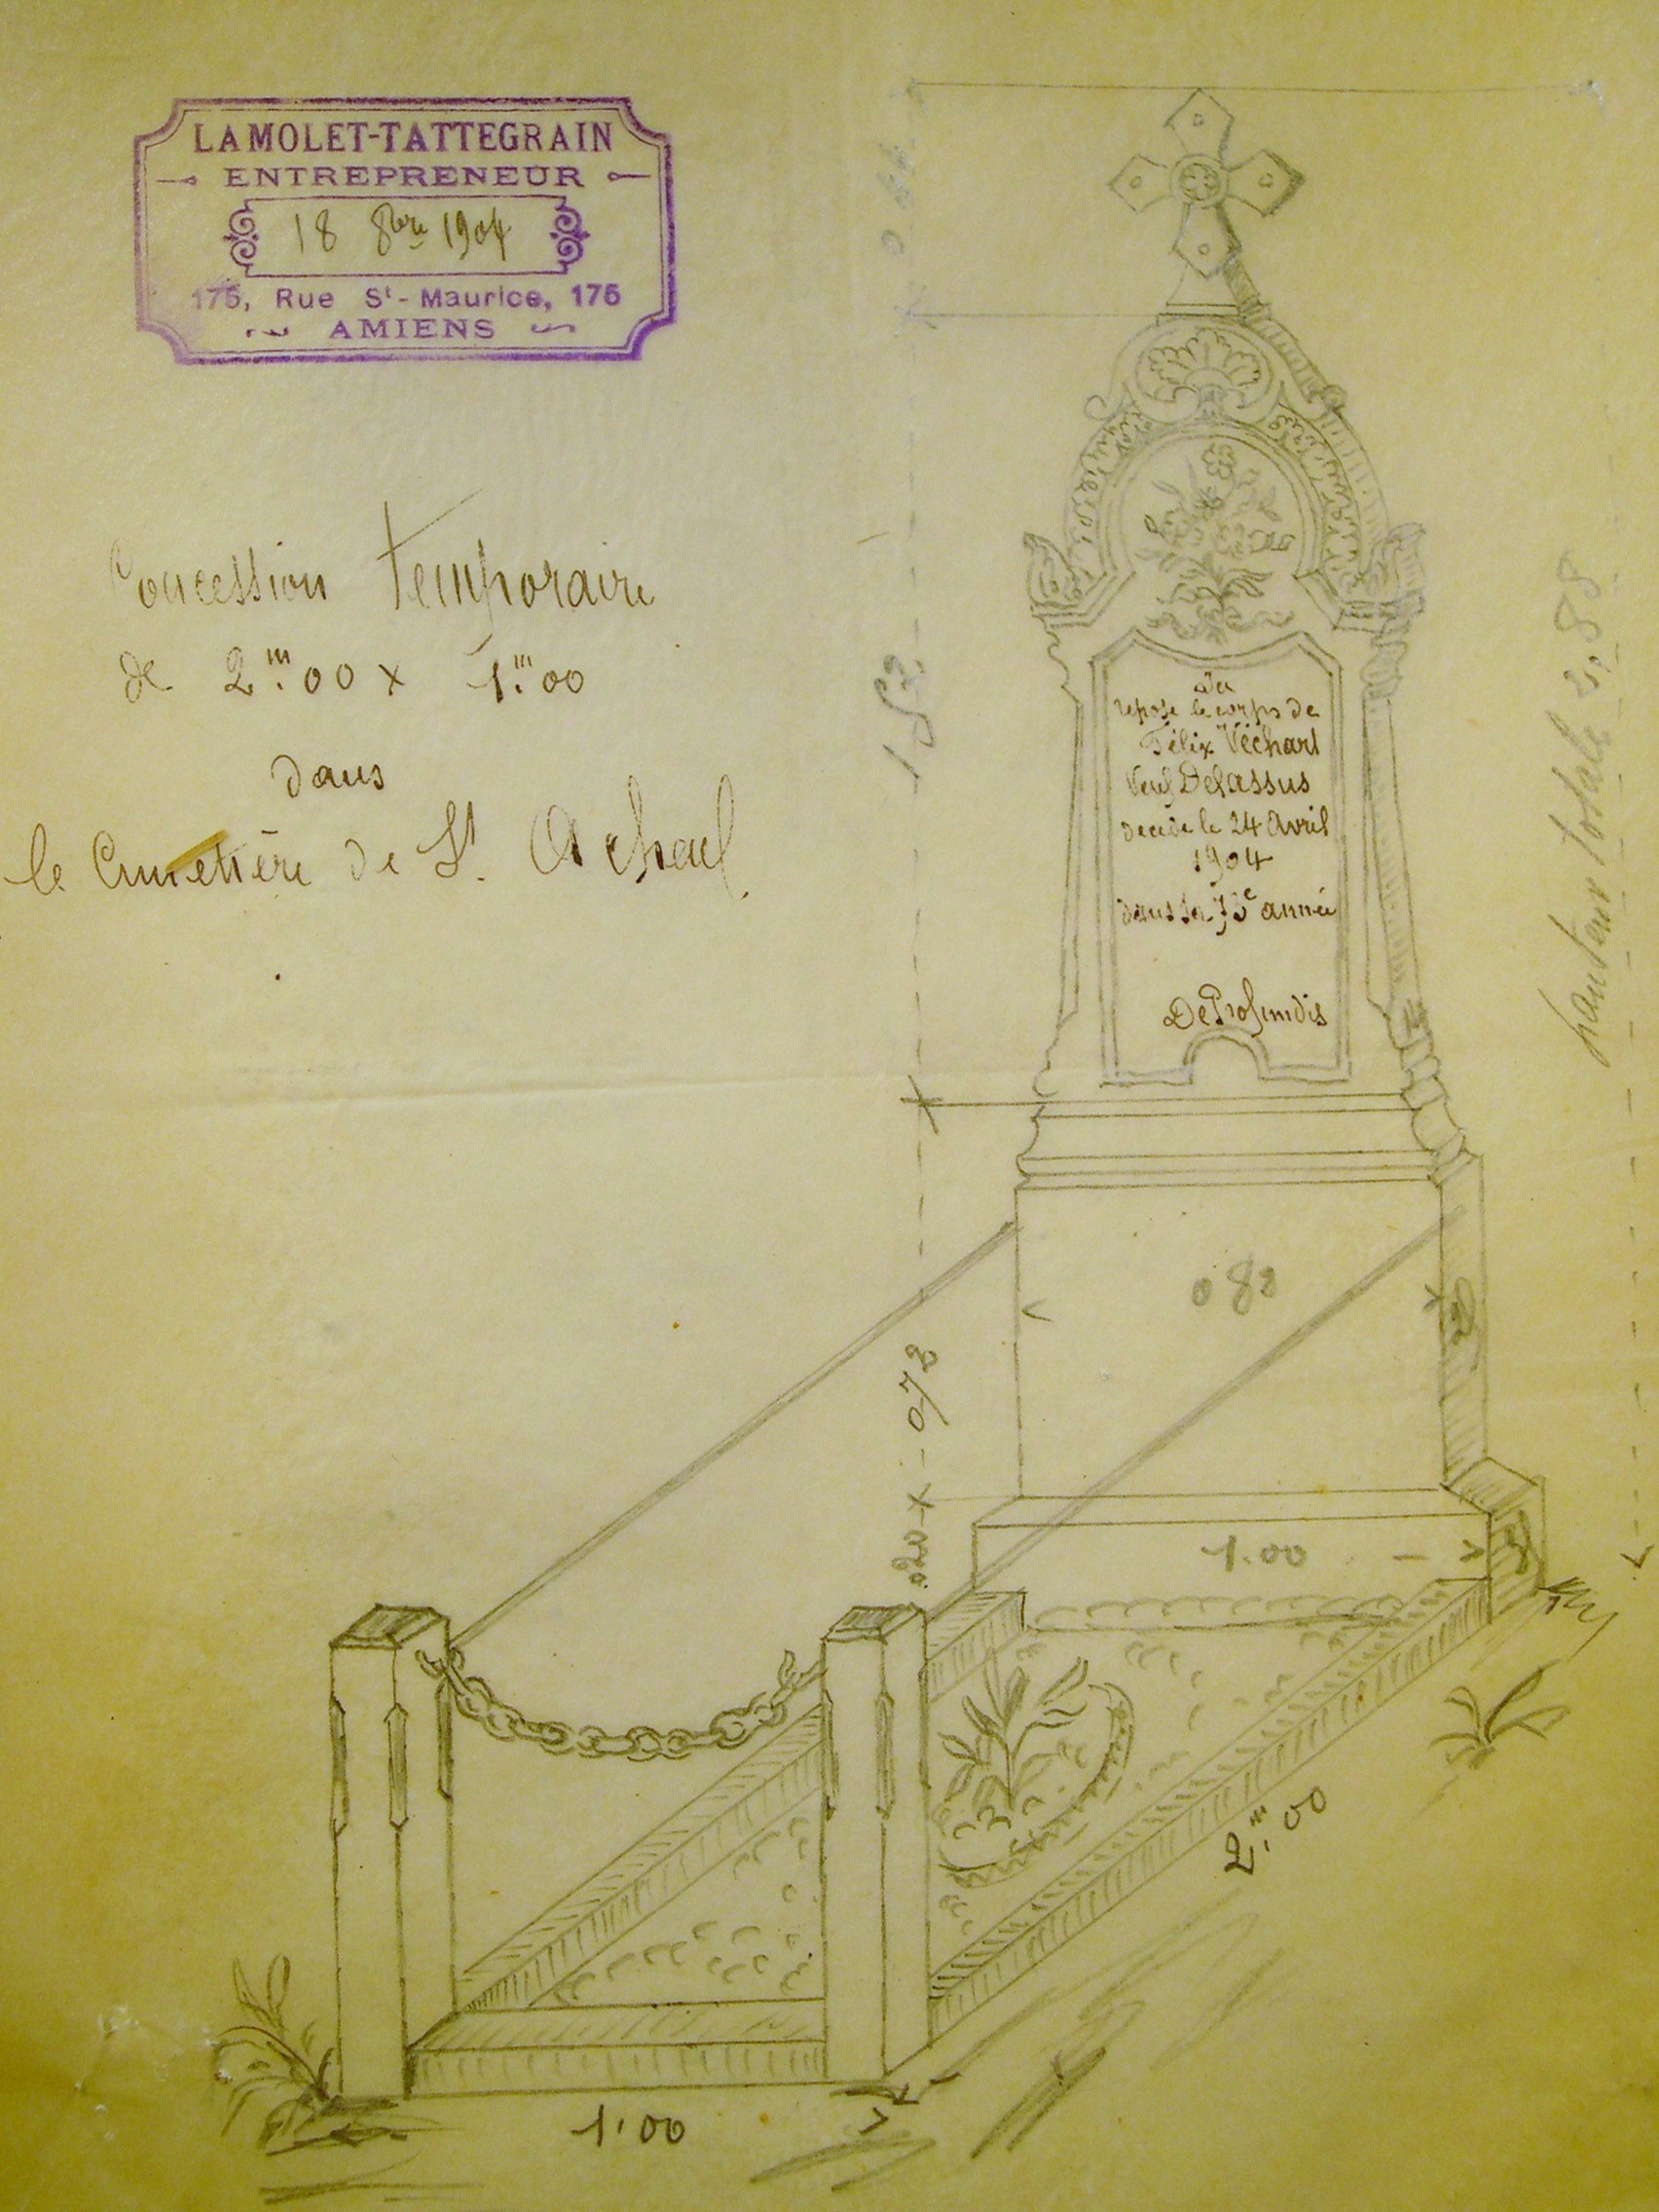 LAMOLET-TATTEGRAIN
ENTREPRENEUR
18 8bre 1904
175, Rue St - Maurice, 175
AMIENS
Concession temporaire
de 2.m00 x 1.m00
dans
le Cimetière de St. Acheul.
Ici
repose le corps de
Félix Véchart
Veuf Delassus
décédé le 24 Avril
1904
dans sa année
De Profundis
hauteur totale 2,88
1 52
0 82
073
020
1.00
2.m00
1.00